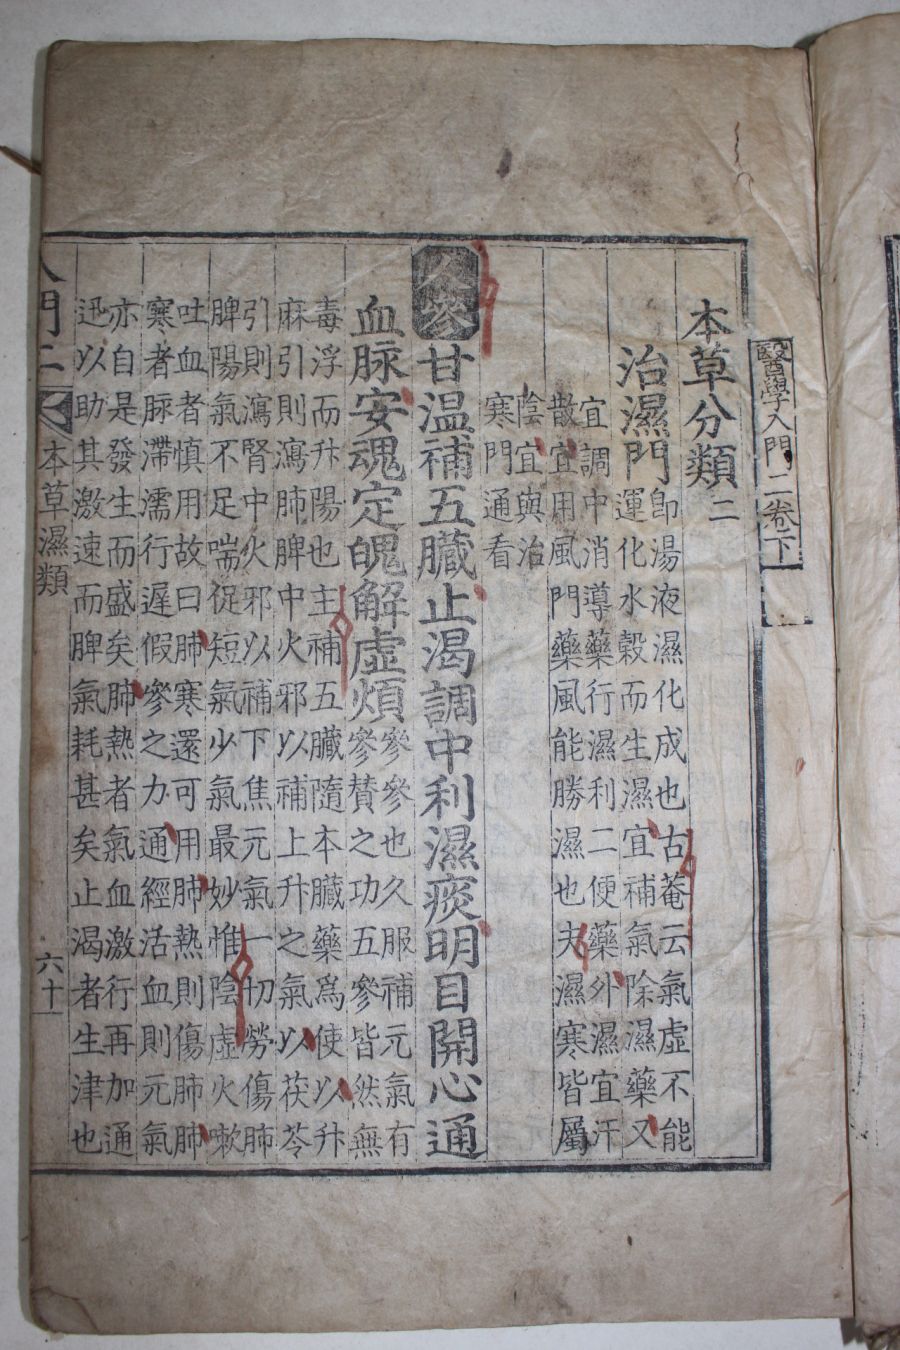 醫學入門二卷下
本草分類二
治濕門
即湯液濕化成也古菴云氣虛不能
運化水穀而生濕宜補氣除濕藥又
宜調中消導藥行濕利二便藥外濕宜汗
散宜用風門藥風能勝濕也夫濕寒皆屬
陰宜與治
寒門通看
人參甘温補五臟止渴調中利濕痰明目開心通
血脉安魂定魄解虛煩
參參也久服補元氣有
參贊之功五參皆然無
毒浮而升陽也主補五臟隨本臟藥爲使以升
麻引則瀉肺脾中火邪以補上升之氣以茯苓
引則瀉腎中火邪以補下焦元氣一切勞傷肺
脾陽氣不足喘促短氣少氣最妙惟陰虛火嗽
吐血者慎用故曰肺寒還可用肺熱則傷肺肺
寒者脉滯濡行遲假參之力通經活血則元氣
亦自是發生而盛矣肺熱者氣血激行再加通
迅以助其激速而脾氣耗甚矣止渴者生津也
入門二 本草濕類 六十